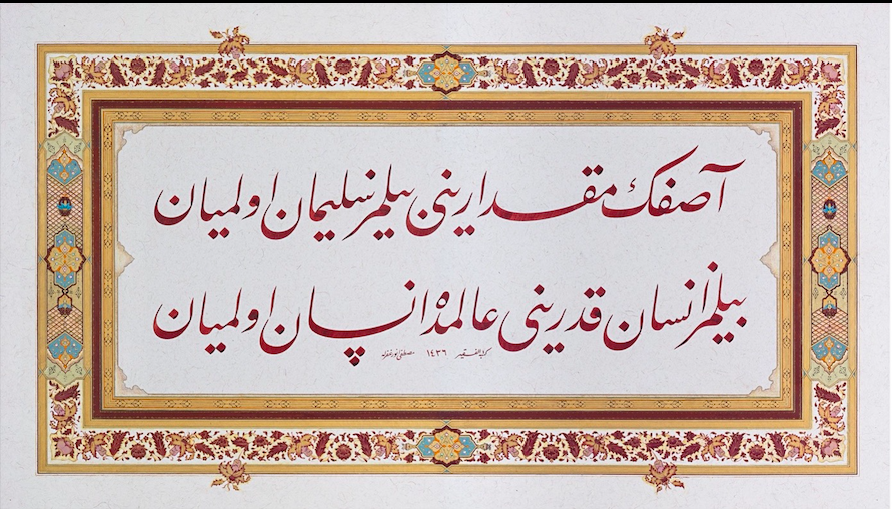 آصفك مقدارینی بیلمز سلیمان اولمیان
بیلمز انسان قدرینی عالمده انسان اولمیان
کتبه الفقیر ١٤٣٦